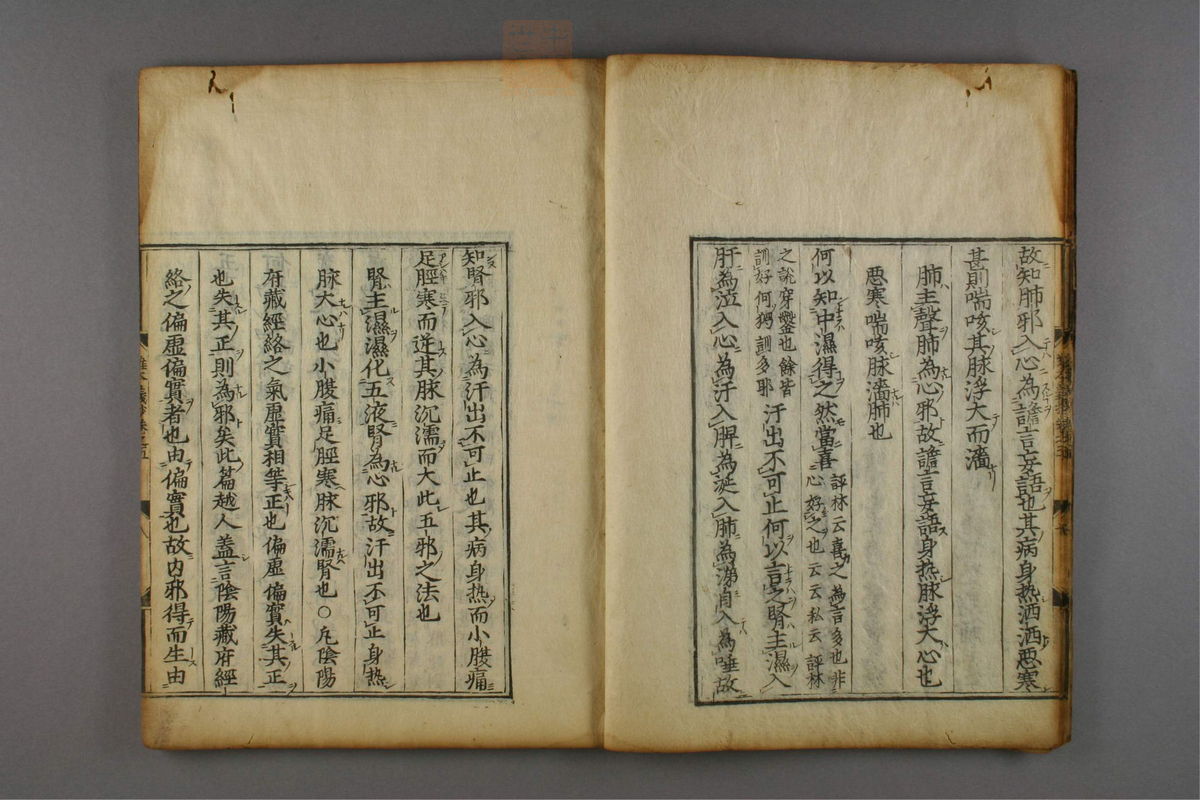 故知肺邪入心為譫言妄語也其病身熱洒洒悪寒
甚則喘咳其脉浮大而濇
肺主聲肺為心邪故譫言妄語身熱脉浮大心也
悪寒喘咳脉濇肺也
何以知中濕得之然當喜
評林云喜之為言多也非
心好之也云云私云評林
之說穿鑿也餘皆
訓好何獨訓多耶
汗出不可止何以言之腎主濕入
肝為泣入心為汗入脾為涎入肺為涕自入為唾故
知腎邪入心為汗出不可止也其病身熱而小腹痛
足脛寒而逆其脉沉濡而大此五邪之法也
腎主濕濕化五液腎為心邪故汗出不可止身熱
脉大心也小腹痛足脛寒脉沉濡腎也○凡陰陽
府藏經絡之氣虛實相等正也偏虛偏實失其正
也失其正則為邪矣此篇越人蓋言陰陽藏府經
絡之偏虛偏實者也由偏實也故内邪得而生由